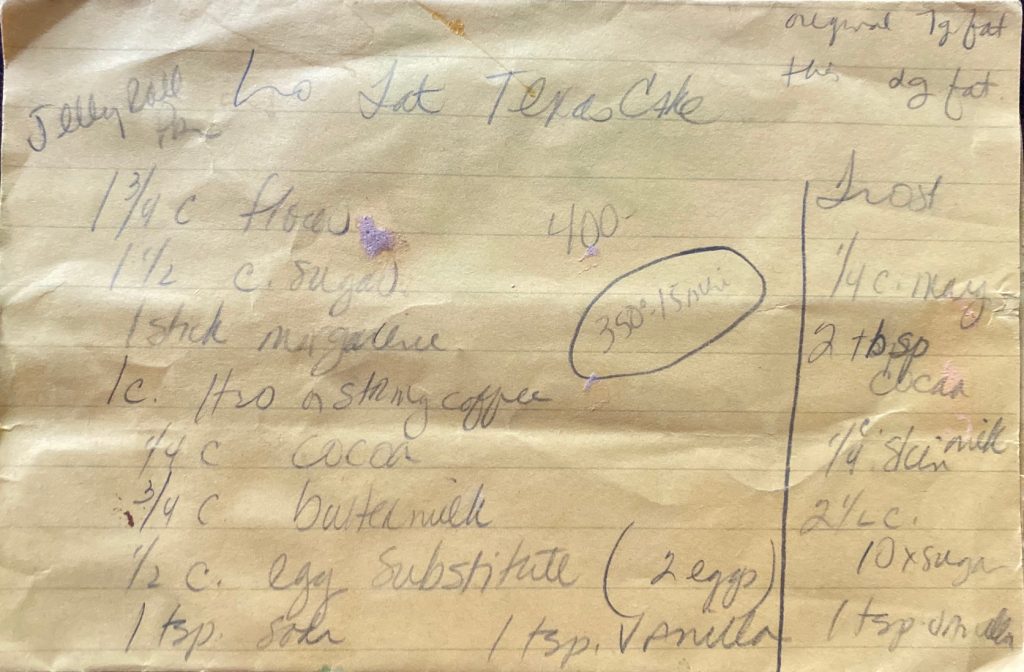 original 7g fat
this 2g fat
Jelly Roll
Pan
Lo Fat Texas Cake
1 3/4 c flour
400
1 1/2 c. sugar
350° 15 min
1 stick margarine
1c. H20 or strong coffee
1/4 c cocoa
3/4 c buttermilk
1/2 c. egg substitute (2 eggs)
1 tsp. soda 1 tsp. vanilla
Frost
1/4 c. marg
2 tbsp
cocoa
1/4 c. skim milk
2 1/2 c.
10x sugar
1 tsp. vanilla